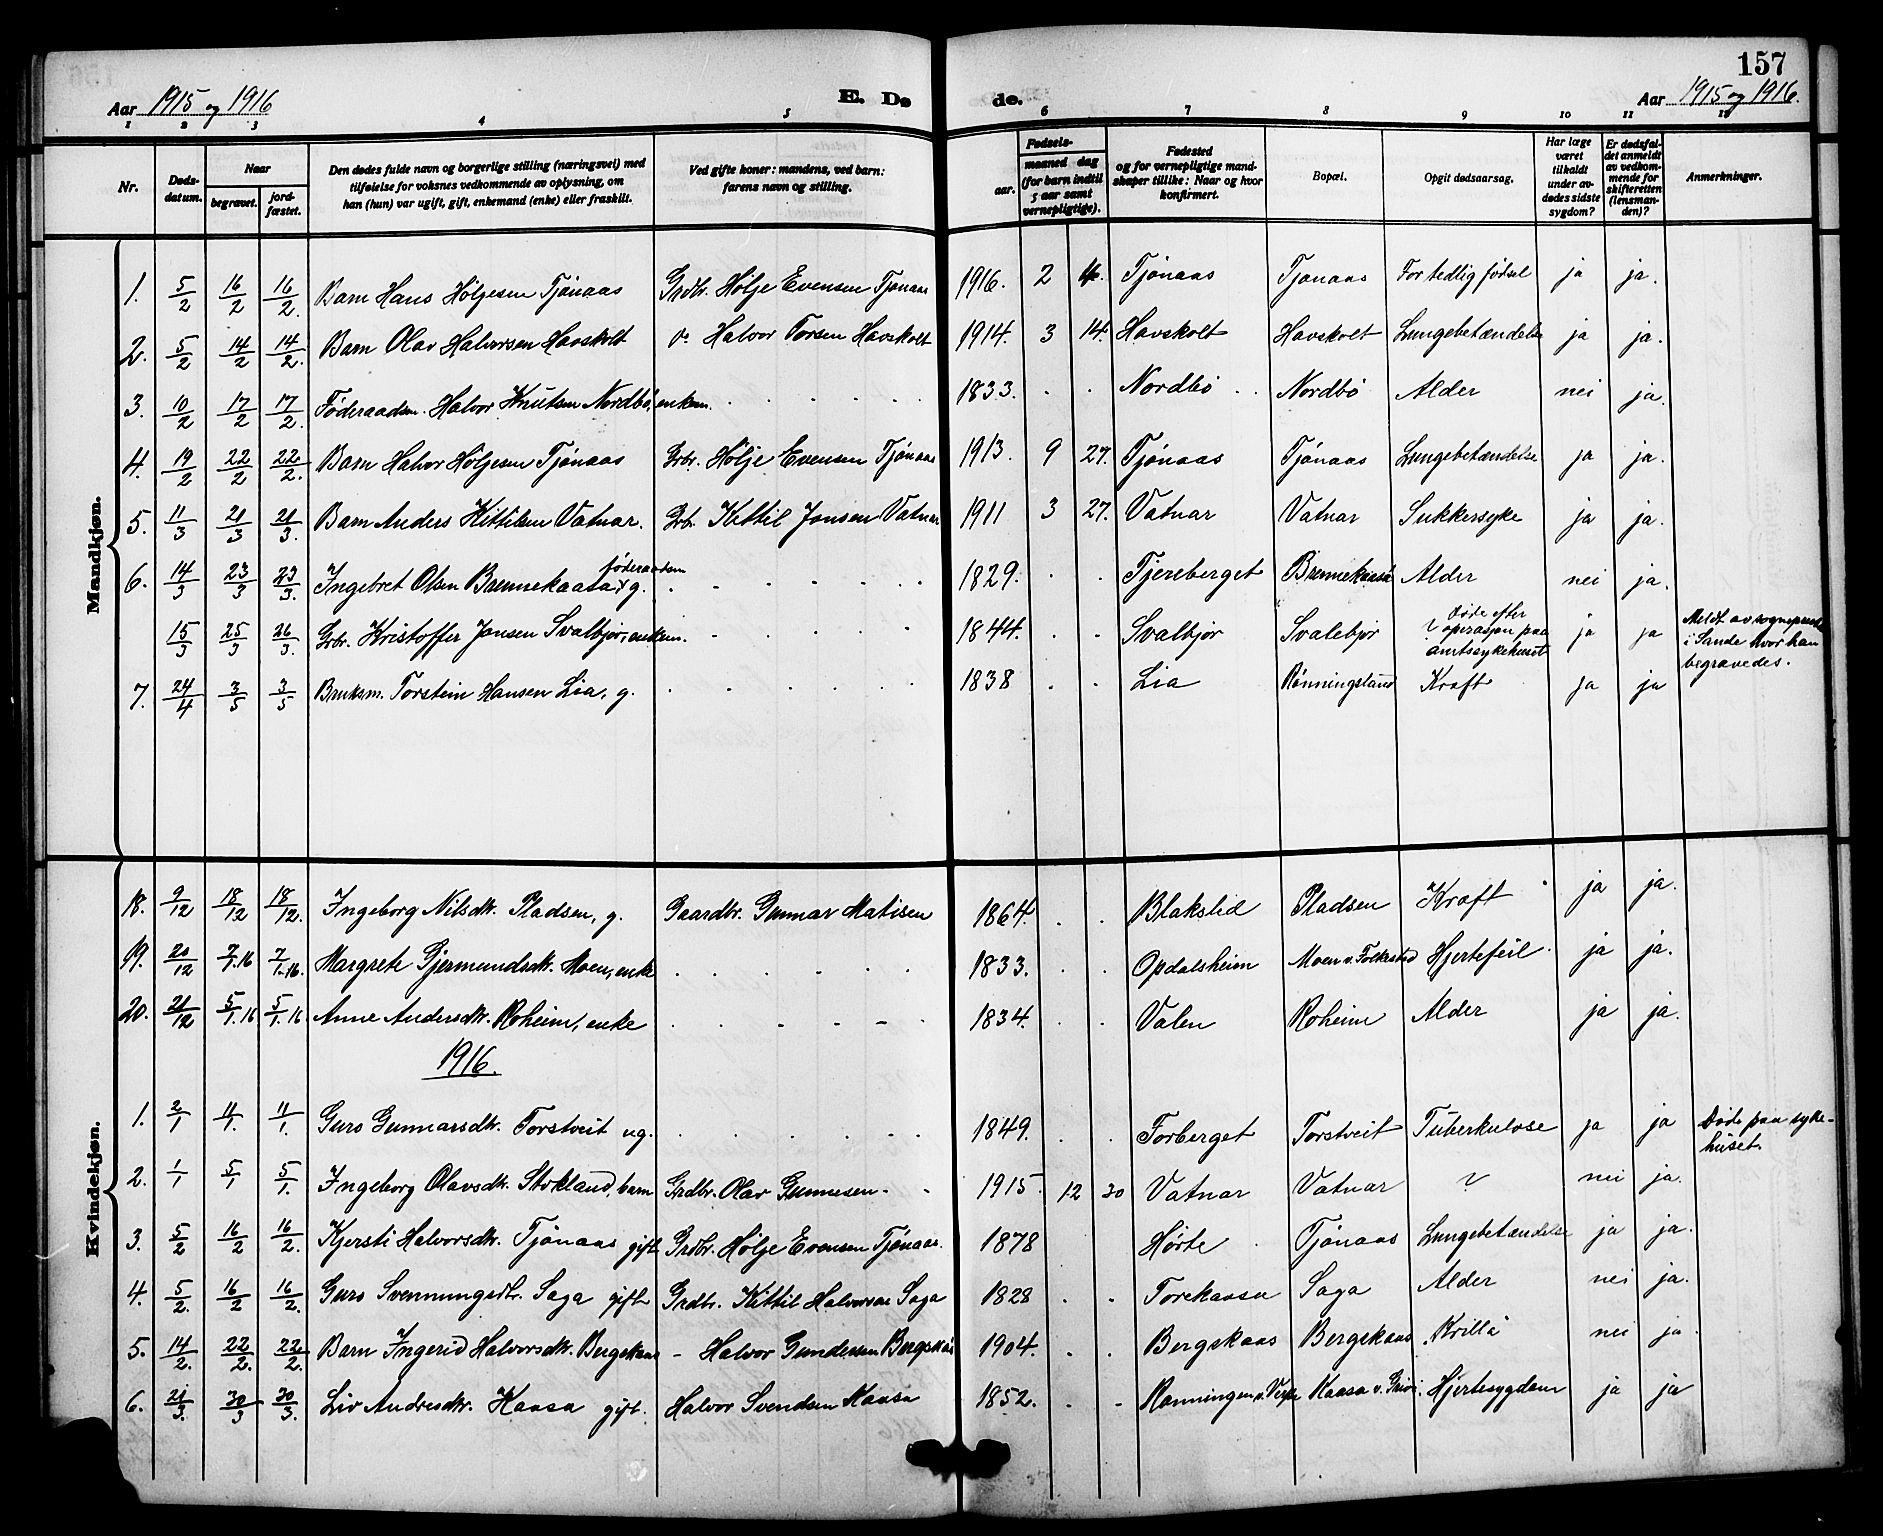 157
Aar 1915 og 1916 E. Dø de. Aar 1915 og 1916.
1 2 3 4 5 6 7 8 9 10 11 12
Nr. Døds-datum. Naar begravet. jord-fæstet. Den dødes fulde navn og borgerlige stilling (næringsvei) med tilføielse for voksnes vedkommende av oplysning, om han (hun) var ugift, gift, enkemand (enke) eller fraskilt. Ved gifte koner: mandens, ved barn: farens navn og stilling. Fødsels- aar. maaned dag (for barn indtil 5 aar samt vernepligtige). Fødested og for vernepligtige mandskaper tillike: Naar og hvor konfirmert. Bopæl. Opgit dødsaarsag. Har læge været tilkaldt under avdødes sidste sygdom? Er dødsfaldet anmeldt av vedkommende for skifteretten (lensmanden)? Anmerkninger.
Mandkjøn.
1. 5/2 16/2 16/2. Barn Hans Höljesen Tjönaas Grdbr. Hölje Evensen Tjönaas 1916. 2 4. Tjönaas Tjönaas For tedlig födsel ja ja.
2. 5/2 14/2 14/2. Barn Olav Halvorsen Havskolt Halvor Torsen Havskolt 1914. 3 14. Havskolt Havskolt Lungebetændelse ja ja.
3. 10/2 17/2 17/2. Föderaadsm. Halvor Knutsen Nordbö, enkem. 1833. Nordbö Nordbö Alder nei ja.
4. 19/2 22/2 22/2. Barn Halvor Höljesen Tjönaas Grbr. Hölje Evensen Tjönaas 1913. 9 27. Tjönaas Tjönaas Lungebetændelse ja ja.
5. 11/3 21/3 21/3. Barn Anders Kittilsen Vatnar. Grb. Kittil Jonsen Vatnar 1911 3 27. Vatnar Vatnar Sukkersyke ja ja.
6. 14/3 23/3 23/3. Ingebret Olsen Brennekaasa, föderaadsm g. 1829. Tjereberget Brennekaasa Alder nei ja.
15/3 25/3 26/3. Grbr. Kristoffer Jonsen Svalbjør, enkem. 1844. Svalbjør Svalebjør Døde efter operasjon paa amtssykehuset ja ja Meldt av sogneprest i Sande hvor han begravedes.
7. 24/4 3/5 3/5 Bruksm. Torstein Hansen Lia, g. 1838 Lia Rönningsland Kræft ja ja
Kvindekjøn.
18. 9/12 18/12 18/12. Ingeborg Nilsdtr. Pladsen, g. Gaardbr. Gunnar Matisen 1864. Blakstid Pladsen Kræft ja ja.
19. 20/12 7/1.16 7/1.16. Margrete Gjermundsdtr. Moen, enke 1833. Opdalsheim Moen v. Folkestad Hjertefeil ja ja.
20. 21/12 5/1.16 5/1.16. Anne Andersdtr. Roheim, enke 1834. Valen Roheim Alder ja ja.
1916.
1. 2/1 11/1. 11/1. Guro Gunnarsdtr. Torstveit ug. 1849. Forberget Torstveit Tuberkulose ja ja Döde paa sykehuset.
2. 1/1 5/1 5/1. Ingeborg Olavsdtr. Stokland, barn Grdbr. Olav Gunnesen 1915. 12 30 Vatnar Vatnar ? nei ja.
3. 5/2 16/2 16/2. Kjersti Halvorsdtr. Tjönaas gift Grdbr. Hölje Evensen Tjönaas. 1878 Hörte Tjönaas Lungebetændelse ja ja.
4. 5/2. 16/2 16/2. Guro Svennungsdtr. Saga gift Grdbr. Kittil Halvorsen Saga 1828 Torekaasa Saga Alder nei ja.
5. 14/2. 22/2. 22/2. Barn Ingerid Halvorsdtr. Bergskaas - Halvor Gundersen Bergskaas 1904. Bergskaas Bergskaas nei ja.
6. 21/3. 30/3 30/3. Liv Andresdtr. Kaasa gift. Halvor Svendsen Kaasa 1852. Rønningen v. Kaasa v. Hjertesygdom ja ja